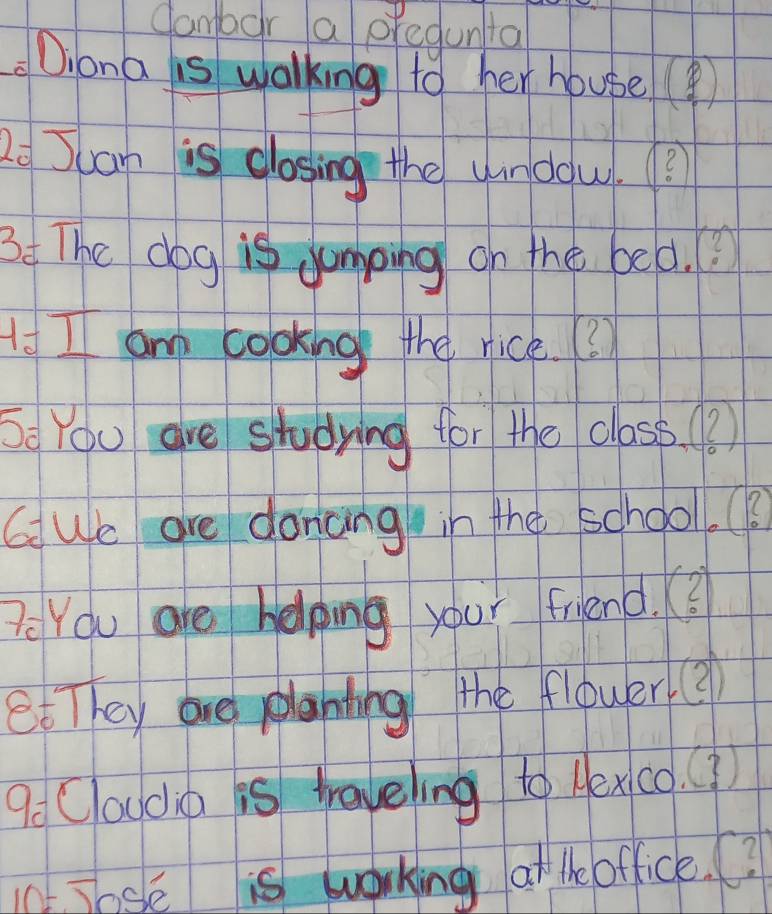 Cambar a pregunta
.- Diona is walking to her house. (?)
2.- Juan is closing the window. (?)
3.- The dog is jumping on the bed. (?)
4.- I am cooking the rice. (?)
5.- You are studying for the class. (?)
6.- We are dancing in the school. (?
7.- You are helping your friend. (?
8.- They are planting the flower. (?)
9.- Claudia is traveling to Mexico. (?)
10.- José is working at the office. (?